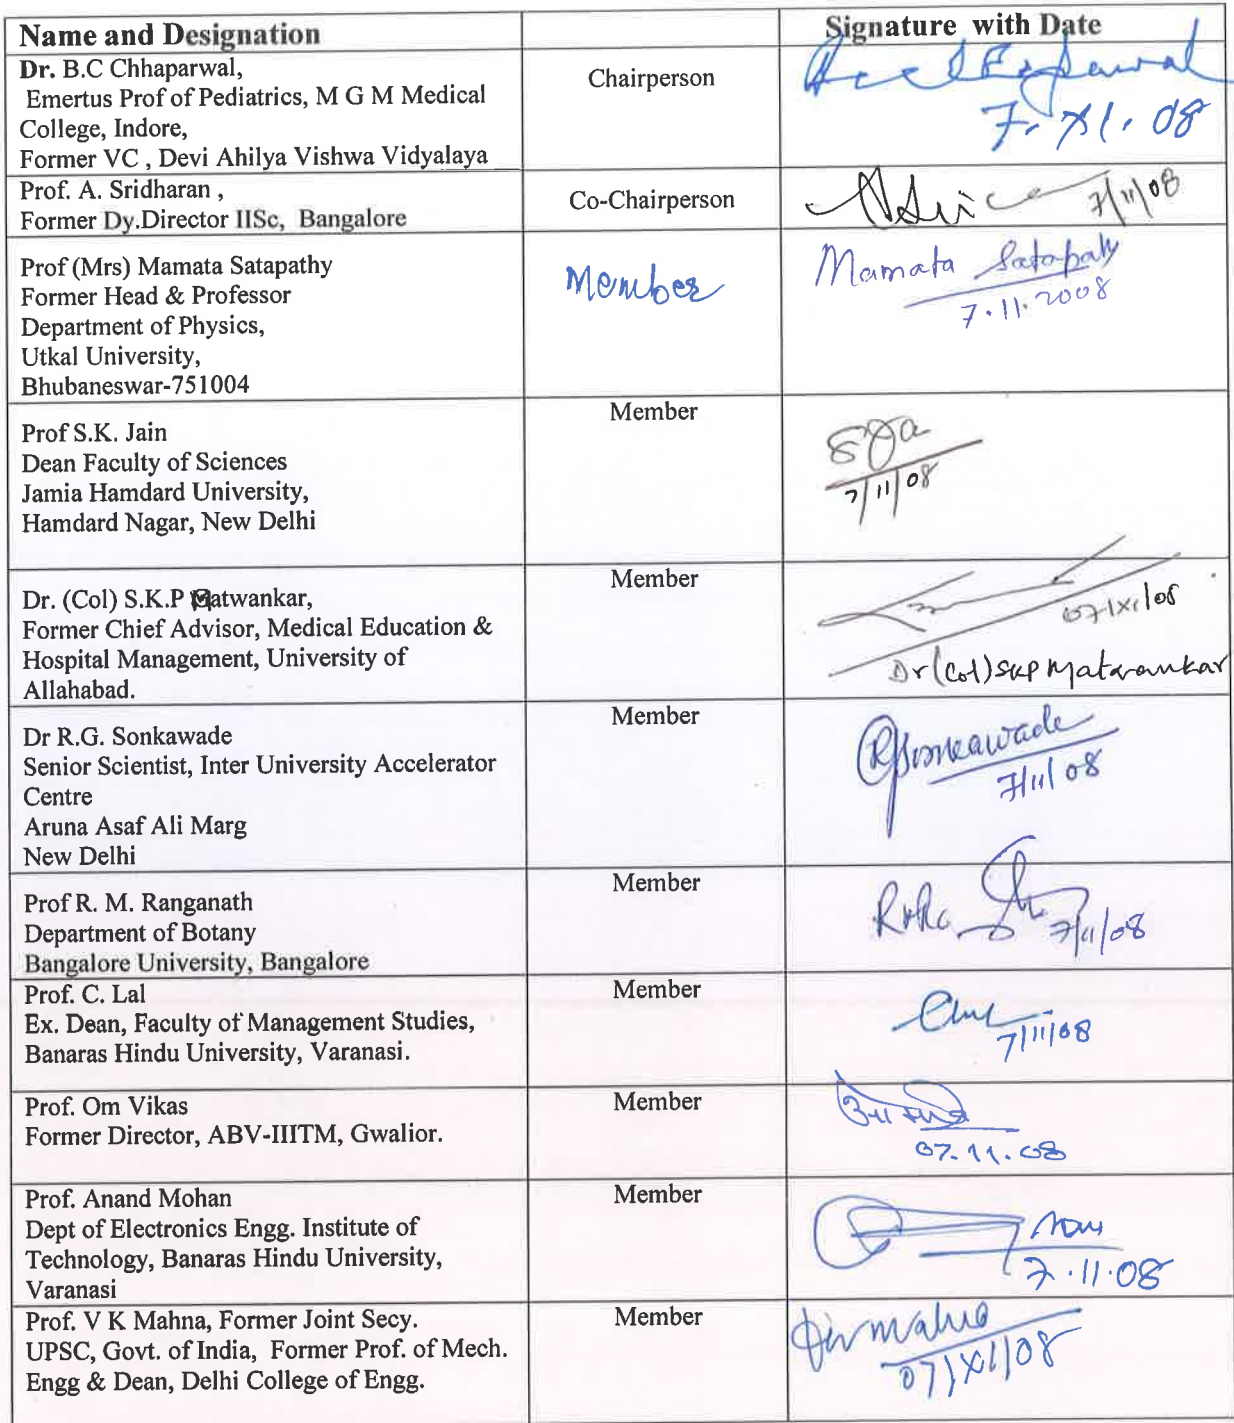 Name and Designation Signature with Date
Dr. B.C Chhaparwal, Chairperson
Emertus Prof of Pediatrics, M G M Medical
College, Indore,
Former VC , Devi Ahilya Vishwa Vidyalaya
7. XI. 08
Prof. A. Sridharan , Co-Chairperson
Former Dy.Director IISc, Bangalore
7/11/08
Prof (Mrs) Mamata Satapathy
Former Head & Professor
Department of Physics,
Utkal University,
Bhubaneswar-751004
Member
Mamata Satapathy
7.11.2008
Prof S.K. Jain
Dean Faculty of Sciences
Jamia Hamdard University,
Hamdard Nagar, New Delhi
Member
7/11/08
Dr. (Col) S.K.P Matwankar,
Former Chief Advisor, Medical Education &
Hospital Management, University of
Allahabad.
Member
07/XI/08
Dr (Col) SKP Matwankar
Dr R.G. Sonkawade
Senior Scientist, Inter University Accelerator
Centre
Aruna Asaf Ali Marg
New Delhi
Member
RGSonkawade
7/11/08
Prof R. M. Ranganath
Department of Botany
Bangalore University, Bangalore
Member
7/11/08
Prof. C. Lal
Ex. Dean, Faculty of Management Studies,
Banaras Hindu University, Varanasi.
Member
7/11/08
Prof. Om Vikas
Former Director, ABV-IIITM, Gwalior.
Member
07.11.08
Prof. Anand Mohan
Dept of Electronics Engg. Institute of
Technology, Banaras Hindu University,
Varanasi
Member
7.11.08
Prof. V K Mahna, Former Joint Secy.
UPSC, Govt. of India, Former Prof. of Mech.
Engg & Dean, Delhi College of Engg.
Member
07/XI/08